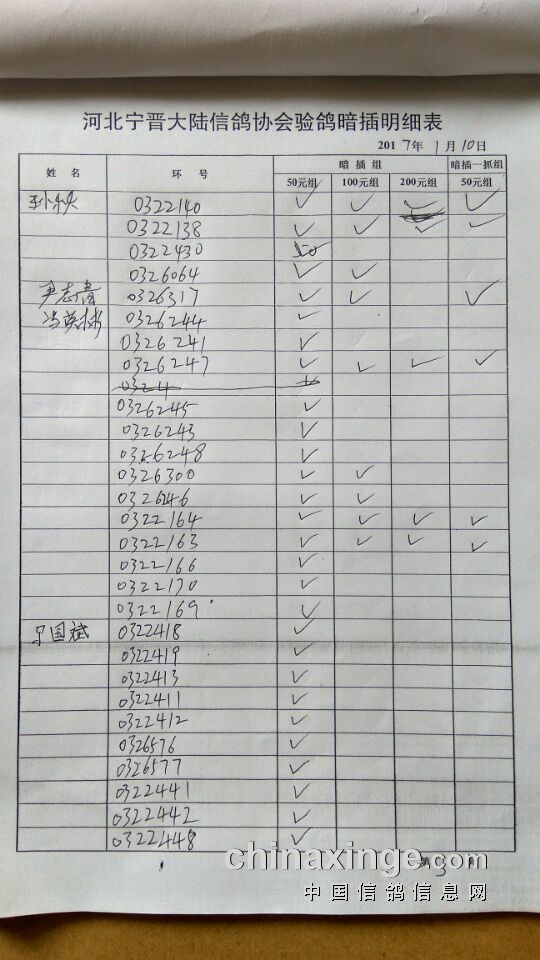 河北宁晋大陆信鸽协会验鸽暗插明细表
2017年1月10日
姓名 环号 暗插组 暗插一抓组
50元组 100元组 200元组 50元组
0322140 ✓ ✓ ✓ ✓
0322138 ✓ ✓ ✓ ✓
0322430 50
0326064 ✓ ✓
尹志青 0326317 ✓ ✓ ✓
冯英彬 0326244 ✓
0326241 ✓
0326247 ✓ ✓ ✓ ✓
0324
0326245 ✓
0326243 ✓
0326248 ✓
0326300 ✓ ✓
0326246 ✓ ✓
0322164 ✓ ✓ ✓ ✓
0322163 ✓ ✓ ✓ ✓
0322166 ✓
0322170 ✓
0322169 ✓
宁国斌 0322418 ✓
0322419 ✓
0322413 ✓
0322411 ✓
0322412 ✓
0326576 ✓
0326577 ✓
0322441 ✓
0322442 ✓
0322448 ✓
第3
chinaxinge.com
中国信鸽信息网